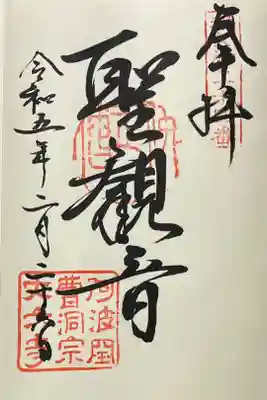 奉拝
聖観音
令和五年二月二十六日
阿波国
曹洞宗